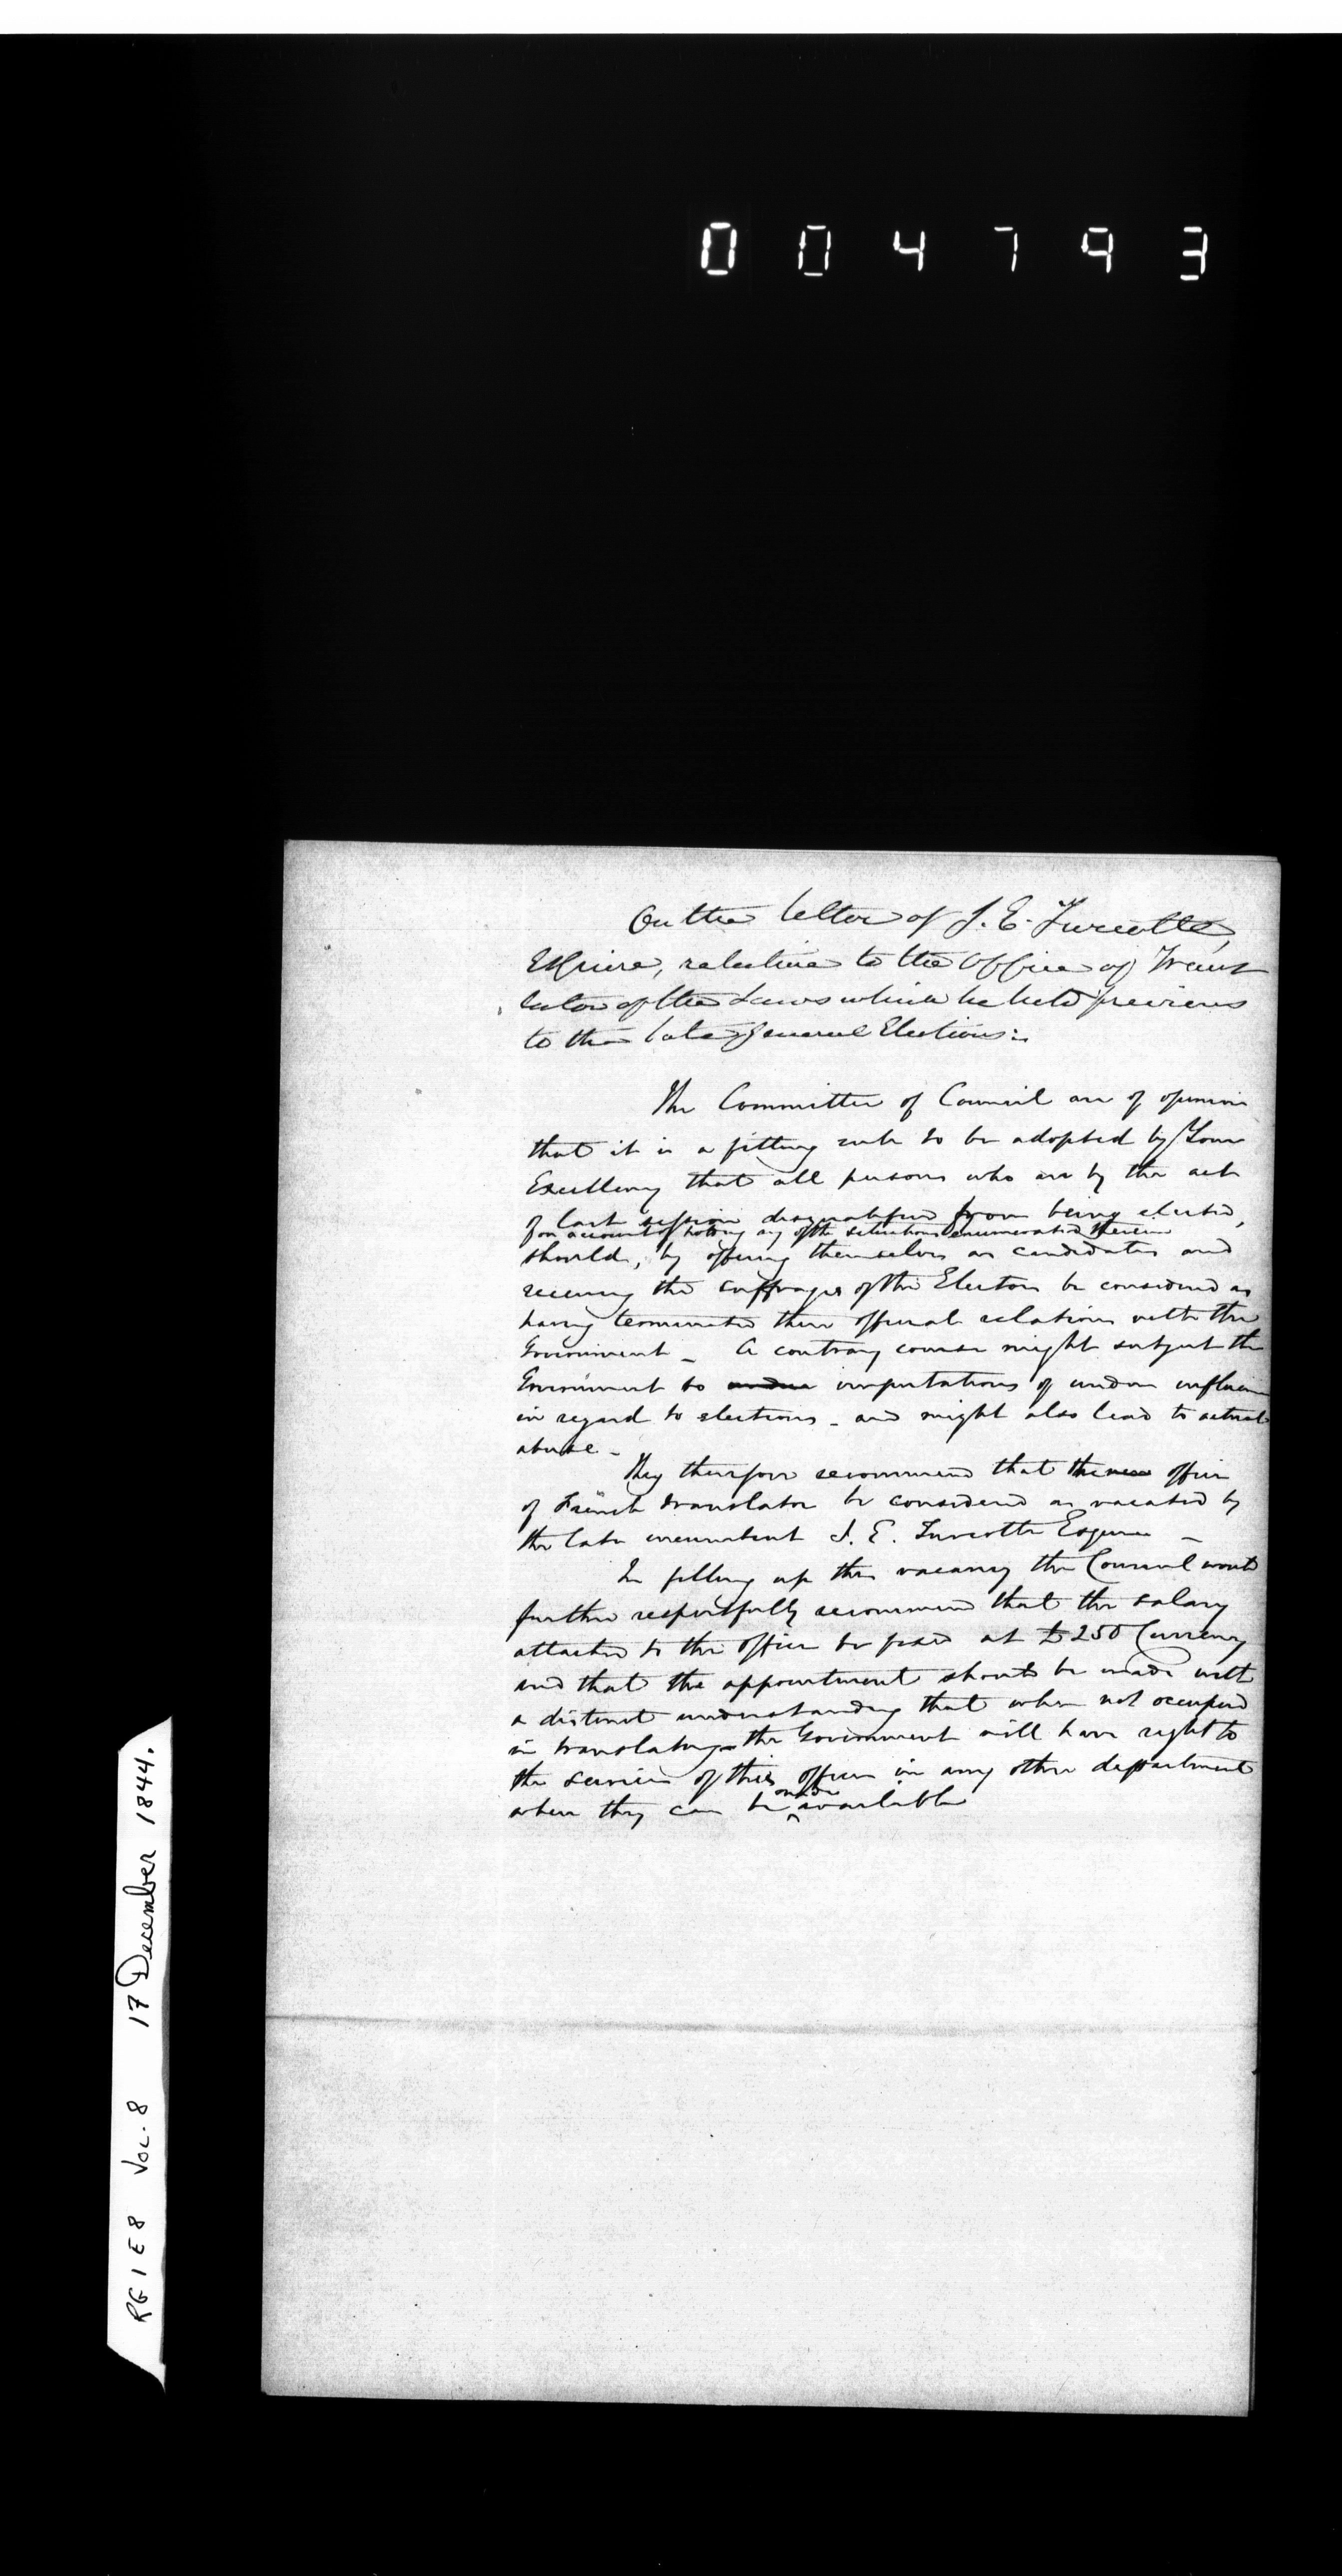 004793
On the letter of J. E. Turcotte,
Esquire, relative to the Office of Trans
lator of the Laws which he held previous
to the late general Elections:
The Committee of Council are of opinion
that it is a fitting rule to be adopted by Your
Excellency that all persons who are by the act
of last session disqualified from being elected,
on account of holding any of the situations enumerated therein
should, by offering themselves as candidates and
receiving the suffrages of the Electors be considered as
having terminated their official relations with the
Government _ A contrary course might subject the
Government to undue imputations of undue influence
in regard to elections _ and might also lead to actual
abuse _
They therefore recommend that the office
of French translator be considered as vacated by
the late incumbent J. E. Turcotte Esquire _
In filling up this vacancy the Council would
further respectfully recommend that the salary
attached to the office be fixed at £250 Currency
and that the appointment should be made with
a distinct understanding that when not occupied
in translating the Government will have right to
the services of this officer in any other department
made
when they can be available
RG 1 E 8 VOL. 8 17 December 1844.